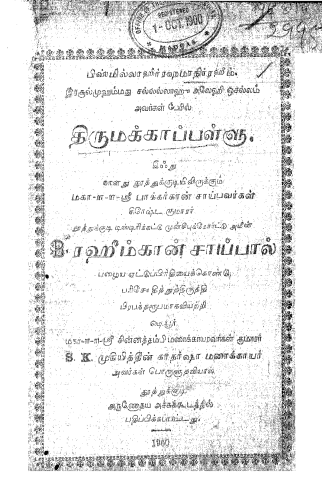 REGISTERED
1-OCT.1900
MADRAS
பிஸ்மில்லாஹிர்ரஹுமானிர்ரஹீம்.
இரசூல்முஹம்மது சல்லல்லாஹு அலேஹி ஒசல்லம்
அவர்கள் பேரில்
திருமக்காப்பள்ளு.
இஃது
தூத்துக்குடியிலிருக்கும்
மகா-ள-ள-ஸ்ரீ பாக்கர்கான் சாய்பவர்கள்
சிரேஷ்ட குமாரர்
தூத்துக்குடி டிஸ்டிரிக்ட்டு முன்சிபுகோர்ட்டு அமீன்
B. ரஹீம்கான் சாய்பால்
பழைய ஏட்டுப்பிரதியைக்கொண்டு
பரிசோதித்துத்திருத்தி
பிரபந்தரூபமாகவியற்றி
ஷெயூர்
மகா-ள-ள-ஸ்ரீ சின்னத்தம்பி மணாக்காயரவர்கள் குமாரர்
S. K. முகியித்தீன் காதர்ஷா மணாக்காயர்
அவர்கள் பொருளுதவியால்
தூத்துக்குடி
அருணோதய அச்சுக்கூடத்தில்
பதிப்பிக்கப்பட்டது.
1900